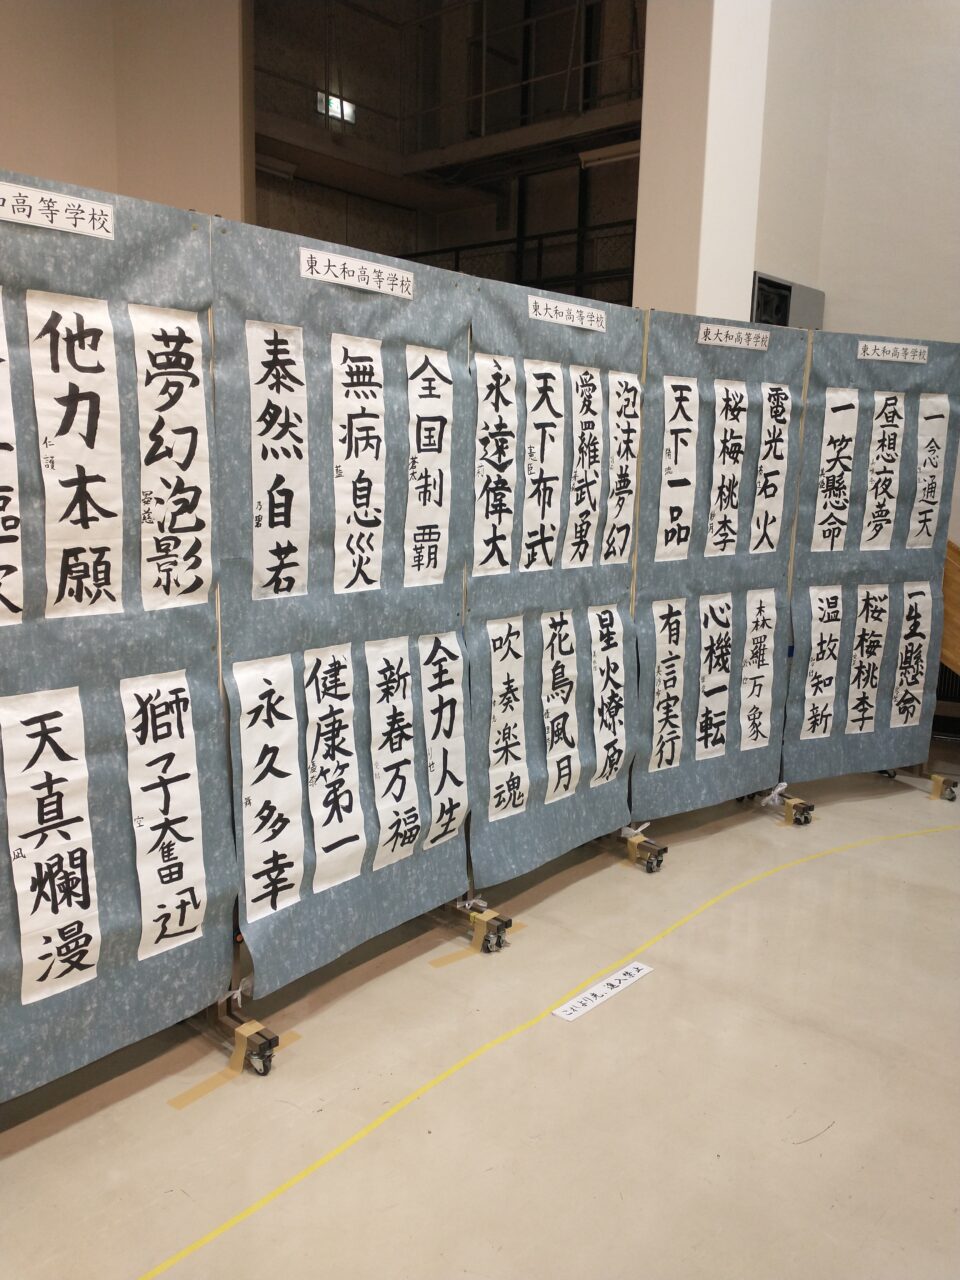 和高等学校
夢幻泡影
他力本願
獅子奮迅
空
天真爛漫
凪
東大和高等学校
全国制覇
蒼太
無病息災
藍
泰然自若
乃碧
全力人生
新春万福
健康第一
永久多幸
舞
東大和高等学校
泡沫夢幻
愛羅武勇
天下布武
永遠偉大
星火燎原
花鳥風月
吹奏楽魂
東大和高等学校
電光石火
桜梅桃李
天下一品
森羅万象
心機一転
有言実行
東大和高等学校
一念通天
昼想夜夢
一笑懸命
一生懸命
桜梅桃李
温故知新